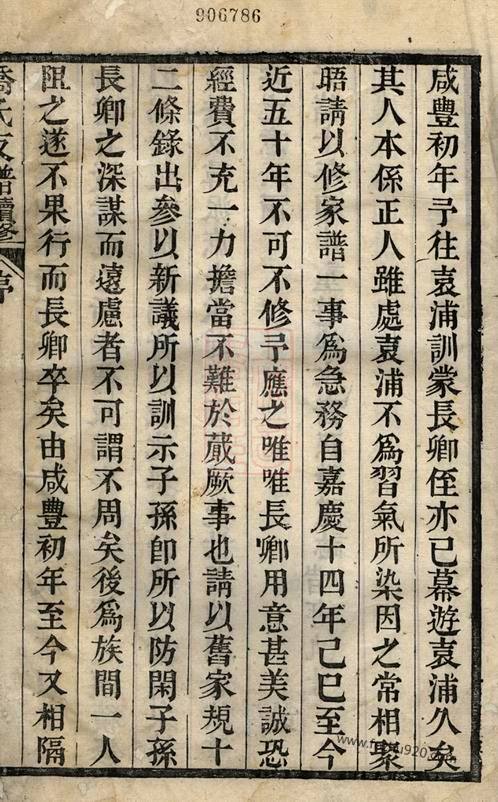 906786
咸豐初年予往袁浦訓蒙長卿侄亦已幕遊袁浦久矣
其人本係正人雖處袁浦不為習氣所染因之常相聚
晤請以修家譜一事為急務自嘉慶十四年己巳至今
近五十年不可不修予應之唯唯長卿用意甚美誠恐
經費不充一力擔當不難於蕆厥事也請以舊家規十
二條錄出參以新議所以訓示子孫即所以防閑子孫
長卿之深謀而遠慮者不可謂不周矣後為族間一人
阻之遂不果行而長卿卒矣由咸豐初年至今又相隔
喬氏支譜續修 序